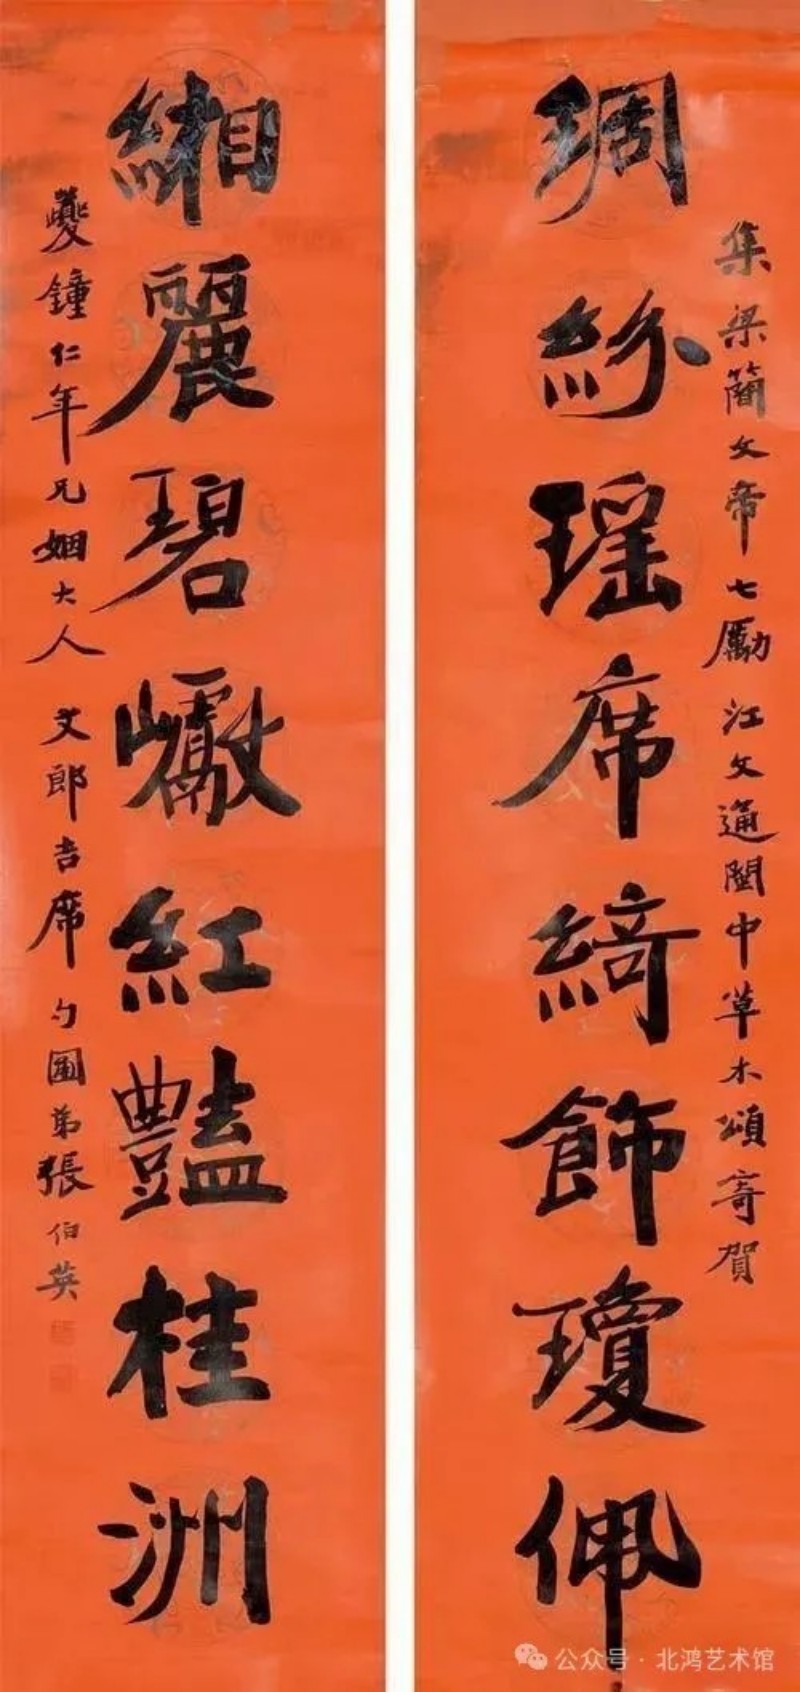 集梁簡文帝七勵江文通閩中草木頌寄賀
琱紛瑤席綺飾瓊佩
緗麗碧巘紅豔桂洲
夔鐘仁年兄姻大人文郎吉席勺圃弟張伯英
公众号·北鸿艺术馆